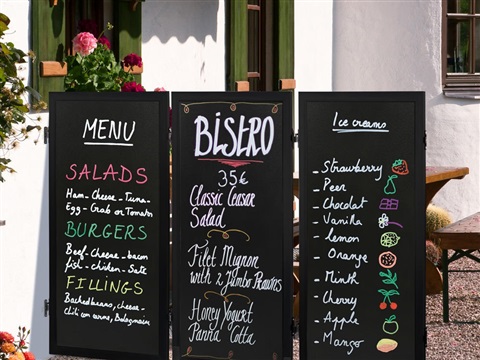 MENU
SALADS
Ham - Cheese - Tuna -
Egg - Grab or Tomatos
BURGERS
Beef - Cheese - bacon
fish - chicken - Sate
FILLINGS
Backed beans, cheese -
Chili con carne, Bolognaise
BISTRO
35€
Classic Ceasar
Salad
Filet Mignon
with 2 Jumbo Prawns
Honey Yogurt
Panna Cotta
Ice creams
- Strawberry
- Peer
- Chocolat
- Vanilla
- lemon
- Orange
- Minth
- Cherry
- Apple
- Mango